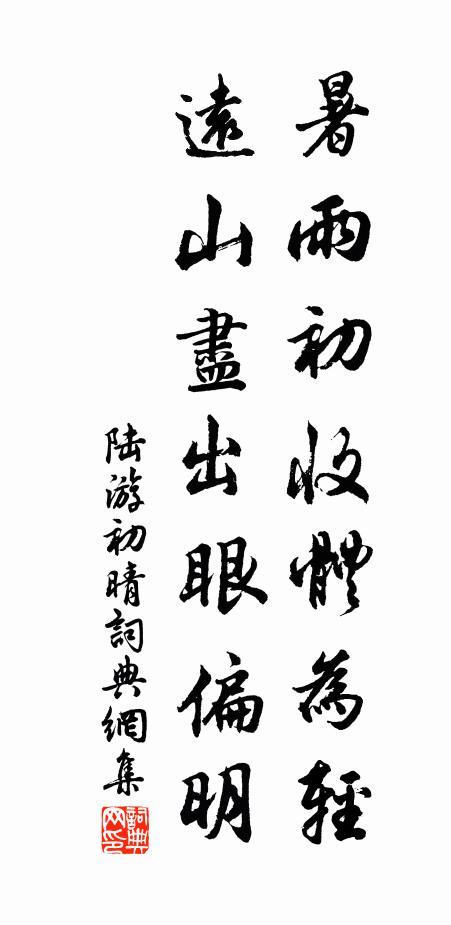 暑雨初收體為輕
遠山盡出眼偏明
陆游初晴詞典網集
詞典网印